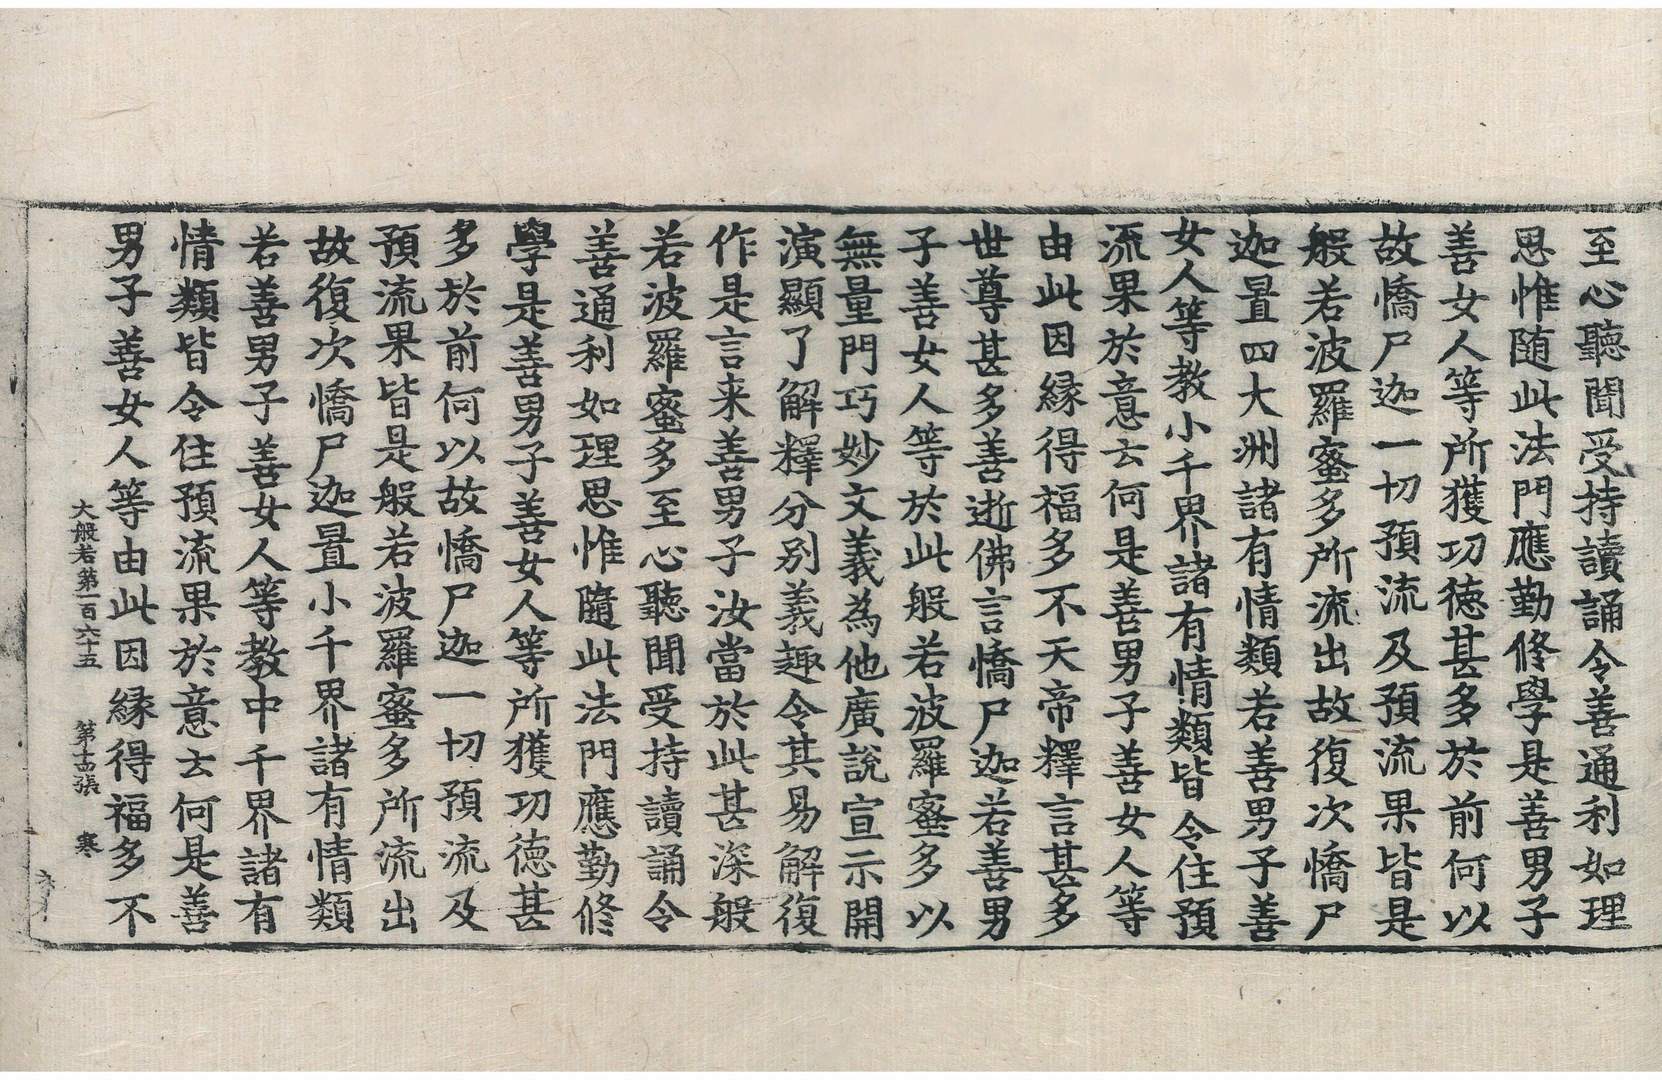 至心聽聞受持讀誦令善通利如理
思惟随此法門應勤修學是善男子
善女人等所獲功德甚多於前何以
故憍尸迦一切預流及預流果皆是
般若波羅蜜多所流出故復次憍尸
迦置四大洲諸有情類若善男子善
女人等教小千界諸有情類皆令住預
流果於意云何是善男子善女人等
由此因緣得福多不天帝釋言甚多
世尊甚多善逝佛言憍尸迦若善男
子善女人等於此般若波羅蜜多以
無量門巧妙文義為他廣說宣示開
演顯了解釋分別義趣令其易解復
作是言来善男子汝當於此甚深般
若波羅蜜多至心聽聞受持讀誦令
善通利如理思惟隨此法門應勤修
學是善男子善女人等所獲功德甚
多於前何以故憍尸迦一切預流及
預流果皆是般若波羅蜜多所流出
故復次憍尸迦置小千界諸有情類
若善男子善女人等教中千界諸有
情類皆令住預流果於意云何是善
男子善女人等由此因緣得福多不
大般若第一百六十五 第十四張 寒